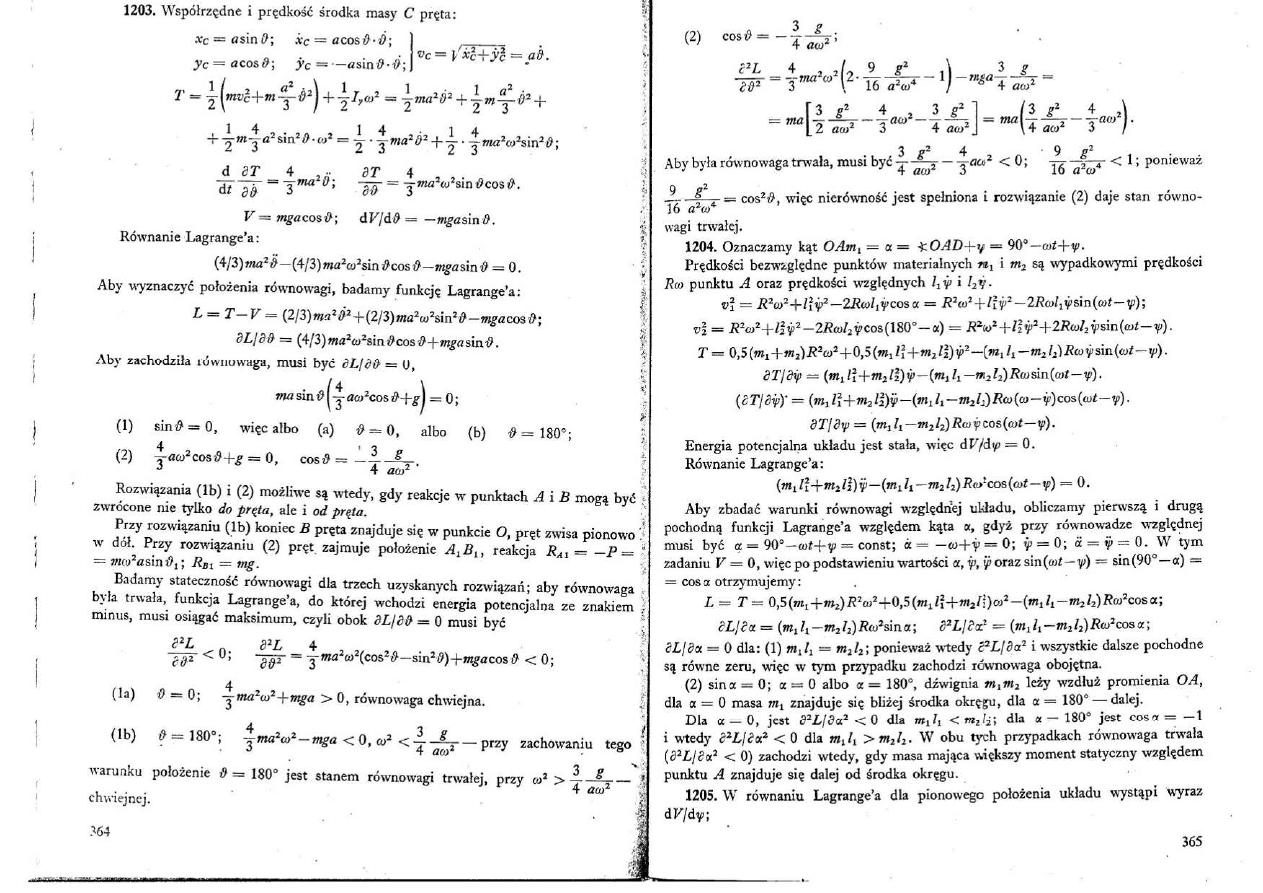 1203. Współrzędne i prędkość środka masy C pręta:
xc = a sin ϑ; ẋc = a cos ϑ · ϑ̇;
yc = a cos ϑ; ẏc = −a sin ϑ · ϑ̇; } vc = √(ẋc²+ẏc²) = aϑ̇.
T = 1/2 (mvc²+m a²/3 ϑ̇²) + 1/2 Iyω² = 1/2 ma²ϑ̇² + 1/2 m a²/3 ϑ̇² +
+ 1/2 m 4/3 a² sin²ϑ · ω² = 1/2 · 4/3 ma²ϑ̇² + 1/2 · 4/3 ma²ω²sin²ϑ;
d/dt ∂T/∂ϑ̇ = 4/3 ma²ϑ̈; ∂T/∂ϑ = 4/3 ma²ω²sin ϑ cos ϑ.
V = mga cos ϑ; dV/dϑ = −mga sin ϑ.
Równanie Lagrange'a:
(4/3)ma²ϑ̈−(4/3)ma²ω²sin ϑ cos ϑ−mga sin ϑ = 0.
Aby wyznaczyć położenia równowagi, badamy funkcję Lagrange'a:
L = T−V = (2/3)ma²ϑ̇²+(2/3)ma²ω²sin²ϑ−mga cos ϑ;
∂L/∂ϑ = (4/3)ma²ω²sin ϑ cos ϑ+mga sin ϑ.
Aby zachodziła równowaga, musi być ∂L/∂ϑ = 0,
ma sin ϑ (4/3 aω²cos ϑ+g) = 0;
(1) sin ϑ = 0, więc albo (a) ϑ = 0, albo (b) ϑ = 180°;
(2) 4/3 aω²cos ϑ+g = 0, cos ϑ = − 3/4 g/aω².
Rozwiązania (1b) i (2) możliwe są wtedy, gdy reakcje w punktach A i B mogą być
zwrócone nie tylko do pręta, ale i od pręta.
Przy rozwiązaniu (1b) koniec B pręta znajduje się w punkcie O, pręt zwisa pionowo
w dół. Przy rozwiązaniu (2) pręt zajmuje położenie A₁B₁, reakcja R_A1 = −P =
= mω²a sin ϑ₁; R_B1 = mg.
Badamy stateczność równowagi dla trzech uzyskanych rozwiązań; aby równowaga
była trwała, funkcja Lagrange'a, do której wchodzi energia potencjalna ze znakiem
minus, musi osiągać maksimum, czyli obok ∂L/∂ϑ = 0 musi być
∂²L/∂ϑ² < 0; ∂²L/∂ϑ² = 4/3 ma²ω²(cos²ϑ−sin²ϑ)+mga cos ϑ < 0;
(1a) ϑ = 0; 4/3 ma²ω²+mga > 0, równowaga chwiejna.
(1b) ϑ = 180°; 4/3 ma²ω²−mga < 0, ω² < 3/4 g/aω² — przy zachowaniu tego
warunku położenie ϑ = 180° jest stanem równowagi trwałej, przy ω² > 3/4 g/aω² —
chwiejnej.
364
(2) cos ϑ = − 3/4 g/aω²;
∂²L/∂ϑ² = 4/3 ma²ω² (2 · 9/16 g²/a²ω⁴ − 1) − mga 3/4 g/aω² =
= ma [3/2 g²/aω² − 4/3 aω² − 3/4 g²/aω²] = ma (3/4 g²/aω² − 4/3 aω²).
Aby była równowaga trwała, musi być 3/4 g²/aω² − 4/3 aω² < 0; 9/16 g²/a²ω⁴ < 1; ponieważ
9/16 g²/a²ω⁴ = cos²ϑ, więc nierówność jest spełniona i rozwiązanie (2) daje stan równo-
wagi trwałej.
1204. Oznaczamy kąt OAm₁ = α = ∢OAD+ψ = 90°−ωt+ψ.
Prędkości bezwzględne punktów materialnych m₁ i m₂ są wypadkowymi prędkości
Rω punktu A oraz prędkości względnych l₁ψ̇ i l₂ψ̇.
v₁² = R²ω²+l₁²ψ̇²−2Rωl₁ψ̇cos α = R²ω²+l₁²ψ̇²−2Rωl₁ψ̇sin(ωt−ψ);
v₂² = R²ω²+l₂²ψ̇²−2Rωl₂ψ̇cos(180°−α) = R²ω²+l₂²ψ̇²+2Rωl₂ψ̇sin(ωt−ψ).
T = 0,5(m₁+m₂)R²ω²+0,5(m₁l₁²+m₂l₂²)ψ̇²−(m₁l₁−m₂l₂)Rωψ̇sin(ωt−ψ).
∂T/∂ψ̇ = (m₁l₁²+m₂l₂²)ψ̇−(m₁l₁−m₂l₂)Rωsin(ωt−ψ).
(∂T/∂ψ̇)˙ = (m₁l₁²+m₂l₂²)ψ̈−(m₁l₁−m₂l₂)Rω(ω−ψ̇)cos(ωt−ψ).
∂T/∂ψ = (m₁l₁−m₂l₂)Rωψ̇cos(ωt−ψ).
Energia potencjalna układu jest stała, więc dV/dψ = 0.
Równanie Lagrange'a:
(m₁l₁²+m₂l₂²)ψ̈−(m₁l₁−m₂l₂)Rω²cos(ωt−ψ) = 0.
Aby zbadać warunki równowagi względnej układu, obliczamy pierwszą i drugą
pochodną funkcji Lagrange'a względem kąta α, gdyż przy równowadze względnej
musi być α = 90°−ωt+ψ = const; α̇ = −ω+ψ̇ = 0; ψ̇ = 0; α̈ = ψ̈ = 0. W tym
zadaniu V = 0, więc po podstawieniu wartości α, ψ̇, ψ̈ oraz sin(ωt−ψ) = sin(90°−α) =
= cos α otrzymujemy:
L = T = 0,5(m₁+m₂)R²ω²+0,5(m₁l₁²+m₂l₂²)ω²−(m₁l₁−m₂l₂)Rω²cos α;
∂L/∂α = (m₁l₁−m₂l₂)Rω²sin α; ∂²L/∂α² = (m₁l₁−m₂l₂)Rω²cos α;
∂L/∂α = 0 dla: (1) m₁l₁ = m₂l₂; ponieważ wtedy ∂²L/∂α² i wszystkie dalsze pochodne
są równe zeru, więc w tym przypadku zachodzi równowaga obojętna.
(2) sin α = 0; α = 0 albo α = 180°, dźwignia m₁m₂ leży wzdłuż promienia OA,
dla α = 0 masa m₁ znajduje się bliżej środka okręgu, dla α = 180° — dalej.
Dla α = 0, jest ∂²L/∂α² < 0 dla m₁l₁ < m₂l₂; dla α = 180° jest cos α = −1
i wtedy ∂²L/∂α² < 0 dla m₁l₁ > m₂l₂. W obu tych przypadkach równowaga trwała
(∂²L/∂α² < 0) zachodzi wtedy, gdy masa mająca większy moment statyczny względem
punktu A znajduje się dalej od środka okręgu.
1205. W równaniu Lagrange'a dla pionowego położenia układu wystąpi wyraz
dV/dψ;
365